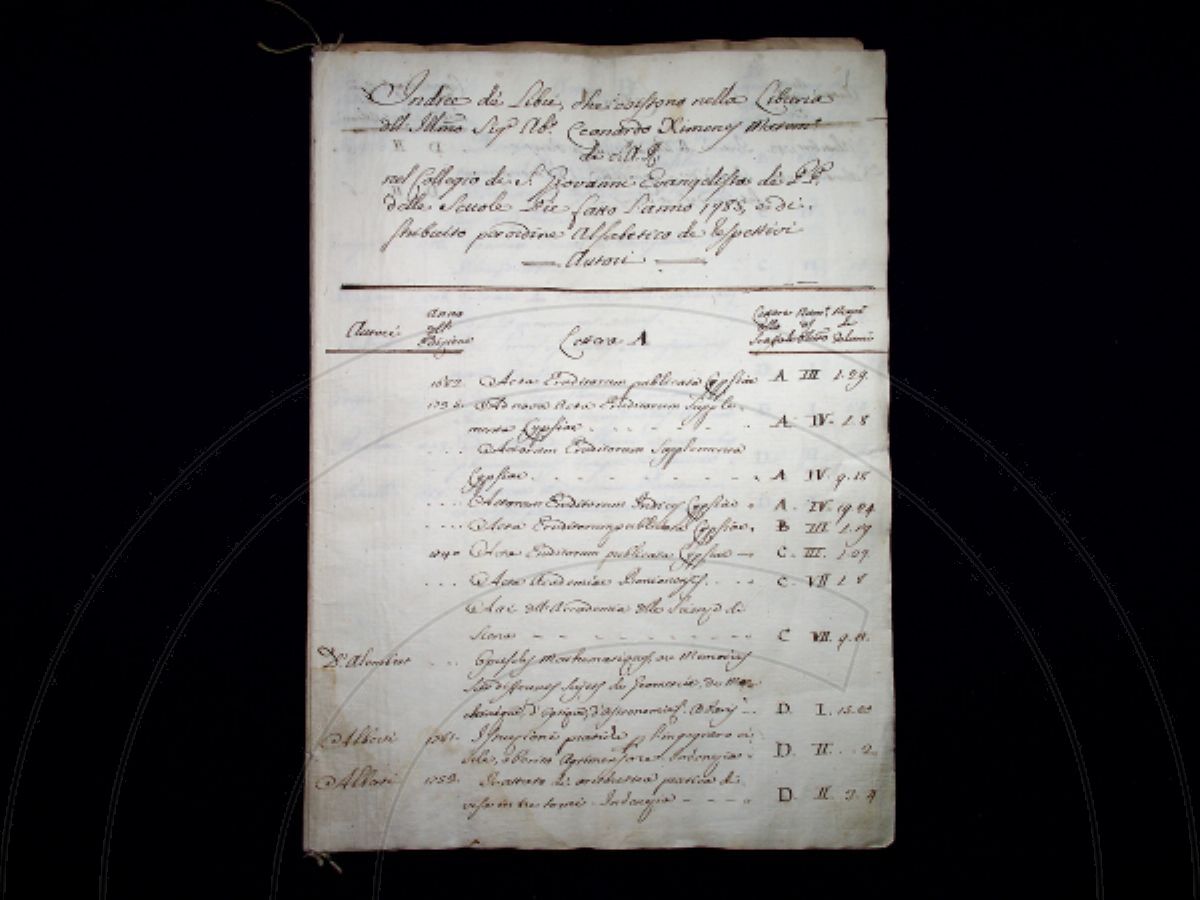 Indice de Libri, che esistono nella Libreria
dell'Illmo Sigr Abe. Leonardo Ximenes Matemo
di S.A.R.
nel Collegio di S. Giovanni Evangelista de PP.
delle Scuole Pie fatto l'anno 1785, e di-
stribuito per ordine Alfabetico de respettivi
Autori
Autori Anno dell' Edizione Lettera A Lettera dello Scaffale Numo al Numo de Volumi
1682. Acta Eruditorum publicata Lypsiae A III 1.29.
Ad nova Acta Eruditorum Supple-
menta Lypsiae A IV. 1.8
Actorum Eruditorum Supplementa
Lypsiae A IV. 9.18
Actorum Eruditorum Indices Lypsiae A. IV. 19.24
Acta Eruditorum publicata Lypsiae B III 1.19
Acta Eruditorum publicata Lypsiae C. III. 1.29.
Acta Academiae C VII 1.8
Atti dell'Accademia delle Scienze di
Siena C VII. 9.11.
D'Alembert Opuscles Mathematiques, ou Memoires
sur differents sujets de Geometrie, de Me-
chanique, d'Optique, d'Astronomie &. a Paris D. I.
Alberti Istruzioni pratiche p l'ingegnero ci-
vile, o Perito Agrimensore. Venezia D. II. 2
Alberti Trattato di aritmetica pratica di
viso in tre tomi. Venezia D. II. 3. 4